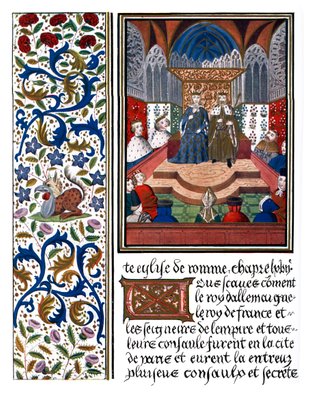 te eglise de romme. chapre lxxviij
Vous scaues cōment
le roy dallemaigne
le roy de france et
les seigneurs de lempire et tous
leurs consaulx furent en la cite
de et eurent la entreulx
pluiseurs consaulx et secretz